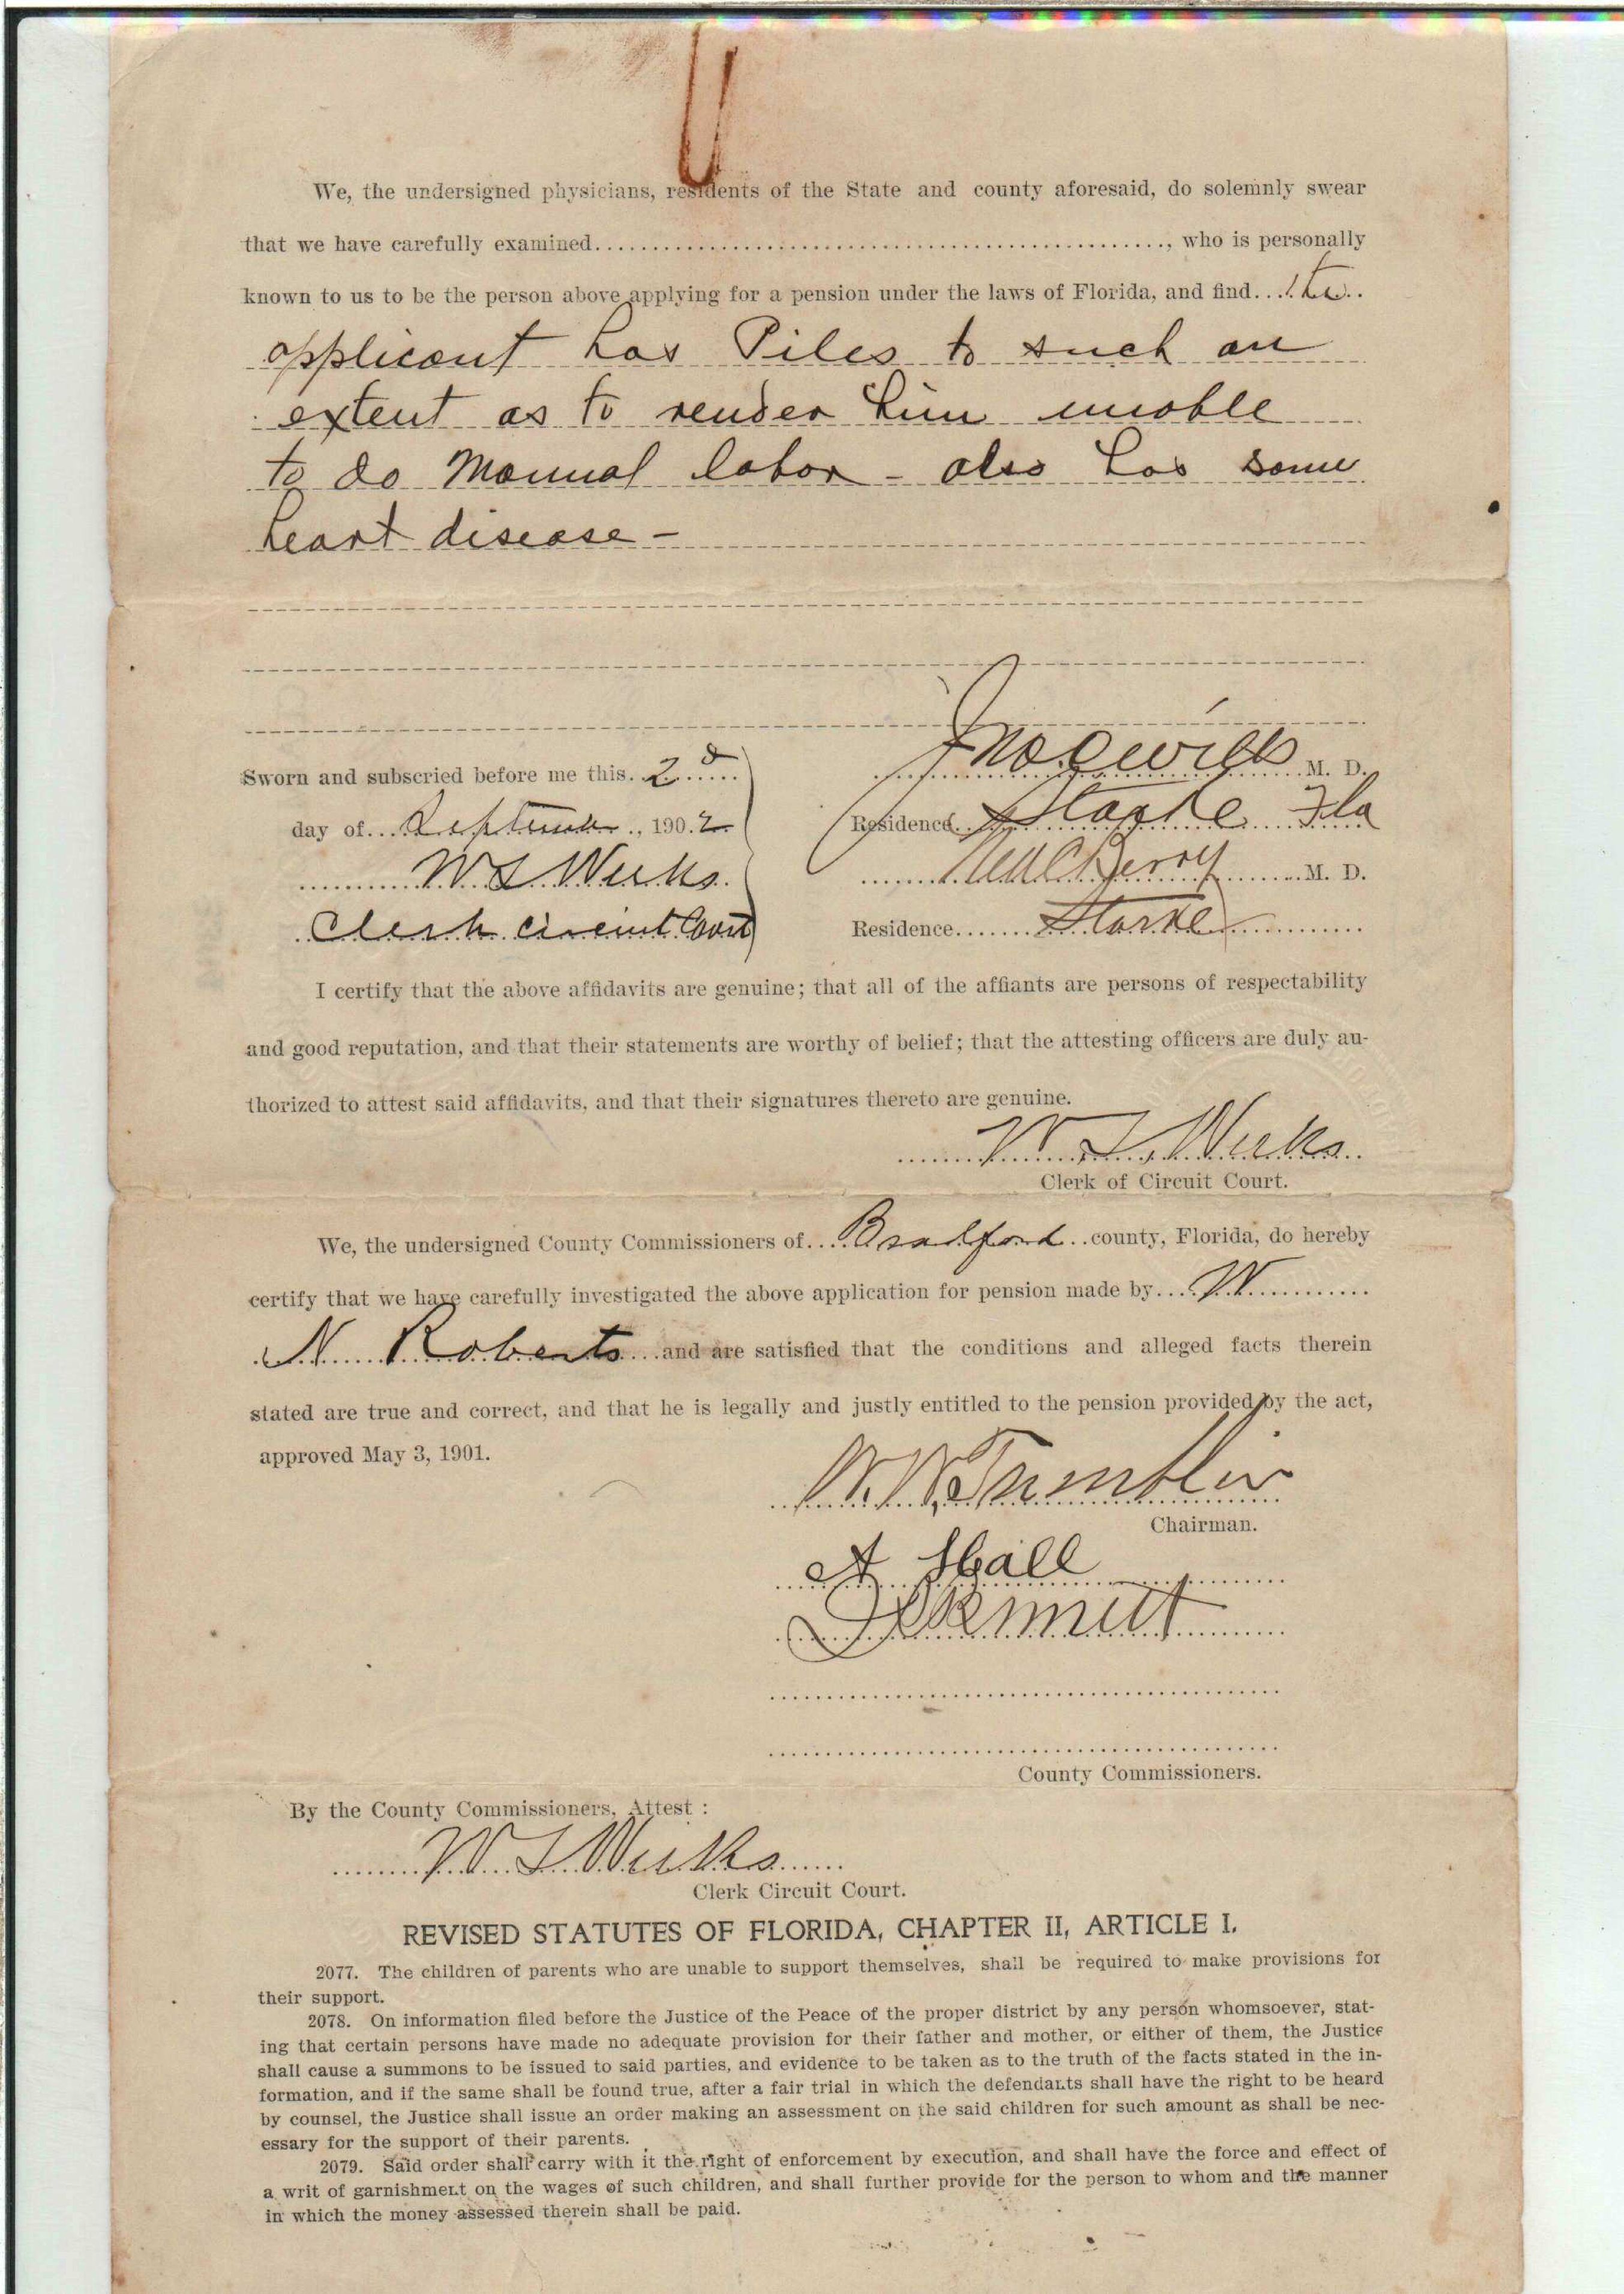 We, the undersigned physicians, residents of the State and county aforesaid, do solemnly swear
that we have carefully examined..................................................., who is personally
known to us to be the person above applying for a pension under the laws of Florida, and find...the..
applicant has Piles to such an
extent as to render him unable
to do Manual labor - also has some
heart disease -
Sworn and subscried before me this. 2d
M. D.
day of... September ., 190.2
Residence.. Starke Fla
W S Weeks
Berry M. D.
Clerk Circuit Court
Residence....... Starke
I certify that the above affidavits are genuine; that all of the affiants are persons of respectability
and good reputation, and that their statements are worthy of belief; that the attesting officers are duly au-
thorized to attest said affidavits, and that their signatures thereto are genuine.
Weeks
Clerk of Circuit Court.
We, the undersigned County Commissioners of.... Bradford ..county, Florida, do hereby
certify that we have carefully investigated the above application for pension made by.... W
N. Roberts and are satisfied that the conditions and alleged facts therein
stated are true and correct, and that he is legally and justly entitled to the pension provided by the act,
approved May 3, 1901.
Chairman.
A Hall
County Commissioners.
By the County Commissioners, Attest :
Weeks
Clerk Circuit Court.
REVISED STATUTES OF FLORIDA, CHAPTER II, ARTICLE I.
2077. The children of parents who are unable to support themselves, shall be required to make provisions for
their support.
2078. On information filed before the Justice of the Peace of the proper district by any person whomsoever, stat-
ing that certain persons have made no adequate provision for their father and mother, or either of them, the Justice
shall cause a summons to be issued to said parties, and evidence to be taken as to the truth of the facts stated in the in-
formation, and if the same shall be found true, after a fair trial in which the defendants shall have the right to be heard
by counsel, the Justice shall issue an order making an assessment on the said children for such amount as shall be nec-
essary for the support of their parents.
2079. Said order shall carry with it the right of enforcement by execution, and shall have the force and effect of
a writ of garnishment on the wages of such children, and shall further provide for the person to whom and the manner
in which the money assessed therein shall be paid.